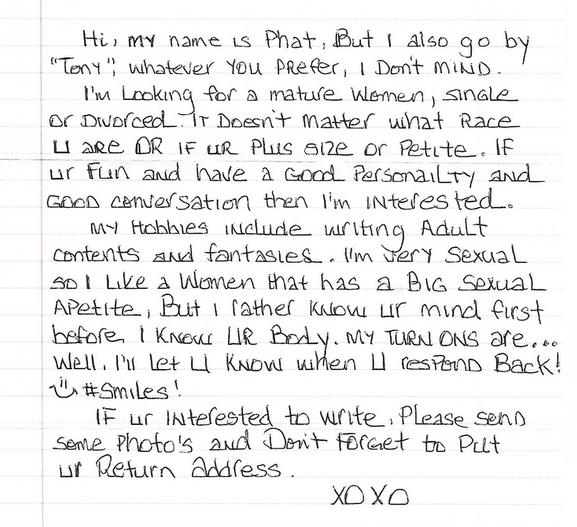 Hi, my name is Phat, But I also go by
"Tony", whatever you prefer, I Don't MIND.
I'm Looking for a mature Women, single
or Divorced. It Doesn't matter what Race
U are OR IF UR Plus size or Petite. IF
ur Fun and have a Good Personailty and
Good conversation then I'm Interested.
My Hobbies include writing Adult
contents and fantasies. I'm very sexual
so I Like a Women that has a BIG sexual
Apetite, But I rather Know ur mind first
before I Know UR Body. My TURN ONS are...
Well, I'll let U Know when U respond Back!
#Smiles!
IF ur Interested to write, Please send
some Photo's and Don't Forget to Put
ur Return Address.
XOXO